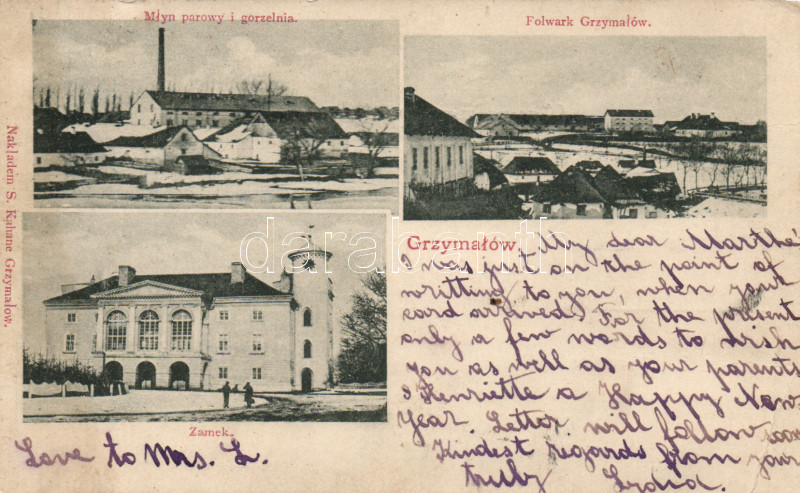 Młyn parowy i gorzelnia.
Folwark Grzymałów.
Nakładem S. Kahane Grzymałow.
Grzymałów,
My dear Marthe!
I was just on the point of
writting to you, when your
card arrived. For the present
only a few words to wish
you as well as your parents
& Henriette a Happy New-
Year. Letter will follow soon
Kindest regards from your
truly
Zamek.
Love to Mrs. L.
darabanth